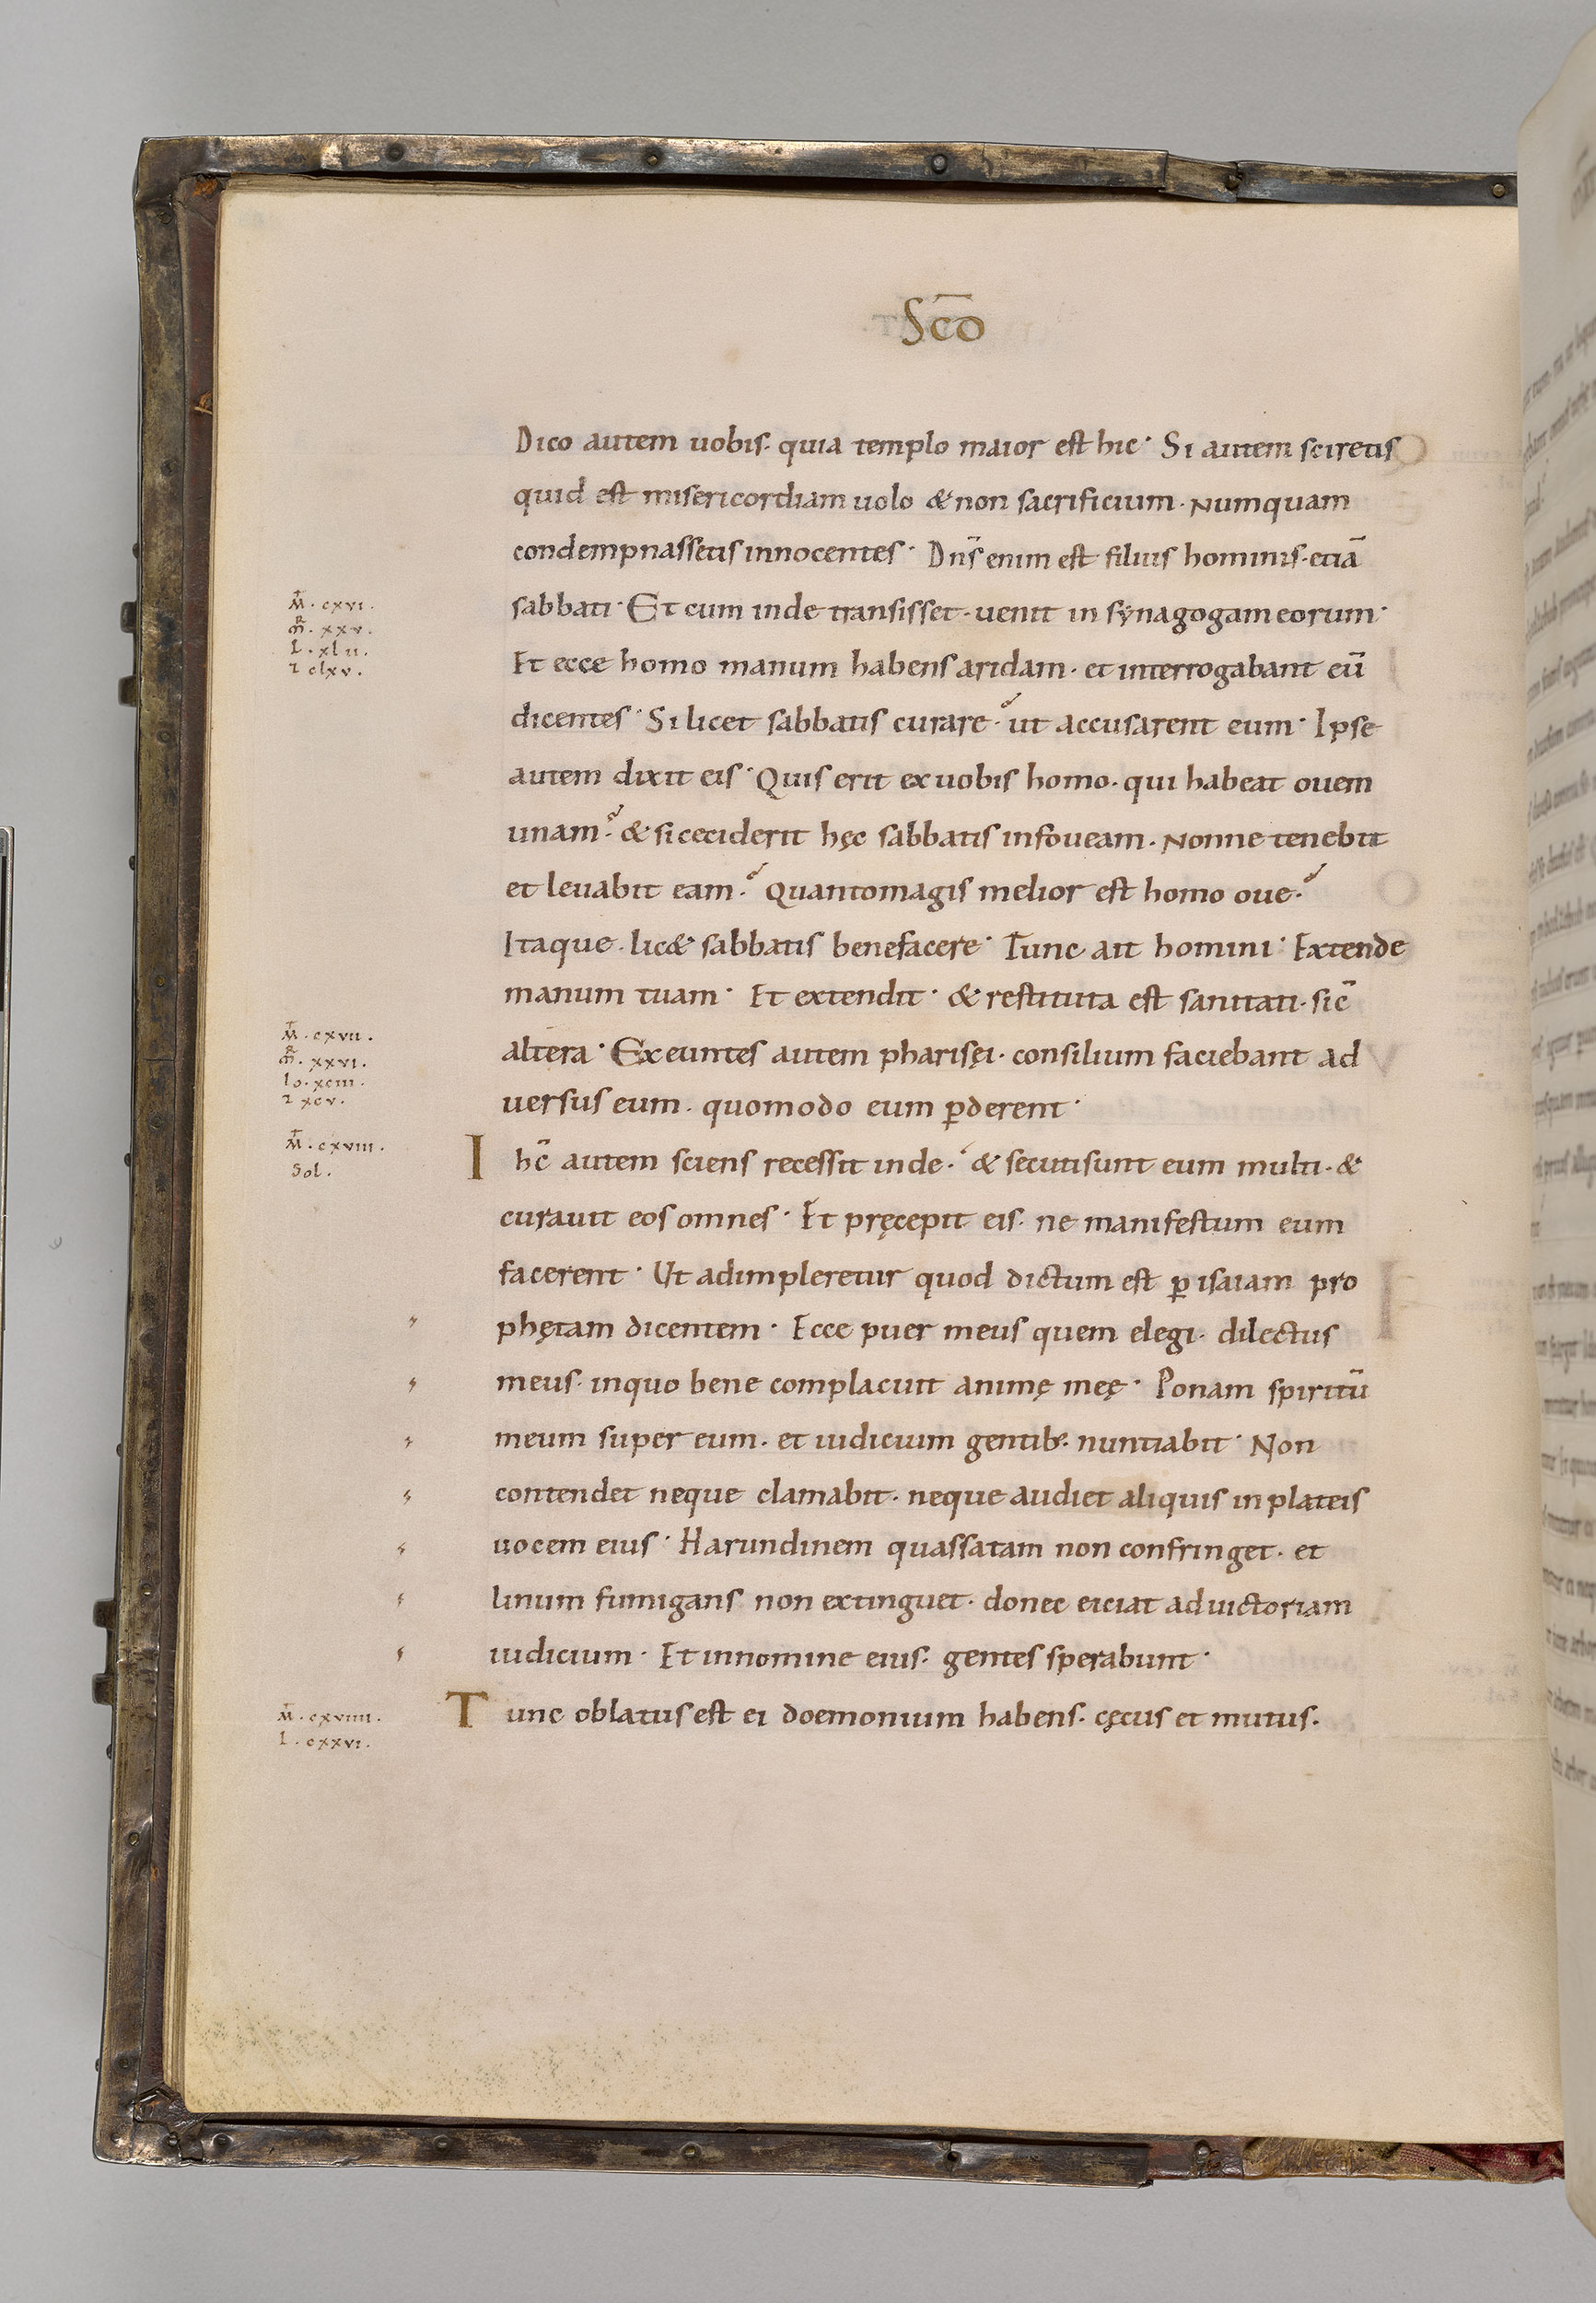 Scō
Dico autem uobis· quia templo maior est hic· Si autem sciretis
quid est misericordiam uolo & non sacrificium· Numquam
condempnassetis innocentes· Dn̄s enim est filius hominis· etiā
sabbati· Et cum inde transisset· uenit in synagogam eorum·
Et ecce homo manum habens aridam· et interrogabant eū
dicentes· Si licet sabbatis curare· ut accusarent eum· Ipse
autem dixit eis· Quis erit ex uobis homo· qui habeat ouem
unam· & si ceciderit hęc sabbatis in foueam· Nonne tenebit
et leuabit eam· Quanto magis melior est homo oue·
Itaque· lic& sabbatis benefacere· Tunc ait homini· Extende
manum tuam· Et extendit· & restituta est sanitati· sic̄
altera· Exeuntes autem pharisęi· consilium faciebant ad
uersus eum· quomodo eum ꝑderent·
Ihc̄ autem sciens recessit inde· & secuti sunt eum multi· &
curauit eos omnes· Et pręcepit eis· ne manifestum eum
facerent· Ut adimpleretur quod dictum est ꝑ isaiam pro
phętam dicentem· Ecce puer meus quem elegi· dilectus
meus· in quo bene complacuit animę meę· Ponam spiritū
meum super eum· et iudicium gentib· nuntiabit· Non
contendet neque clamabit· neque audiet aliquis in plateis
uocem eius· Harundinem quassatam non confringet· et
linum fumigans non extinguet· donec eiciat ad uictoriam
iudicium· Et in nomine eius· gentes sperabunt·
Tunc oblatus est ei doemonium habens· cęcus et mutus·
M̄· cxvi·
m̄· xxv·
L· xlii·
2 clxv·
M̄· cxvii·
m̄· xxvi·
Io· xciii·
2 xcv·
M̄· cxviii·
Sol·
M̄· cxviiii·
L· cxxvi·